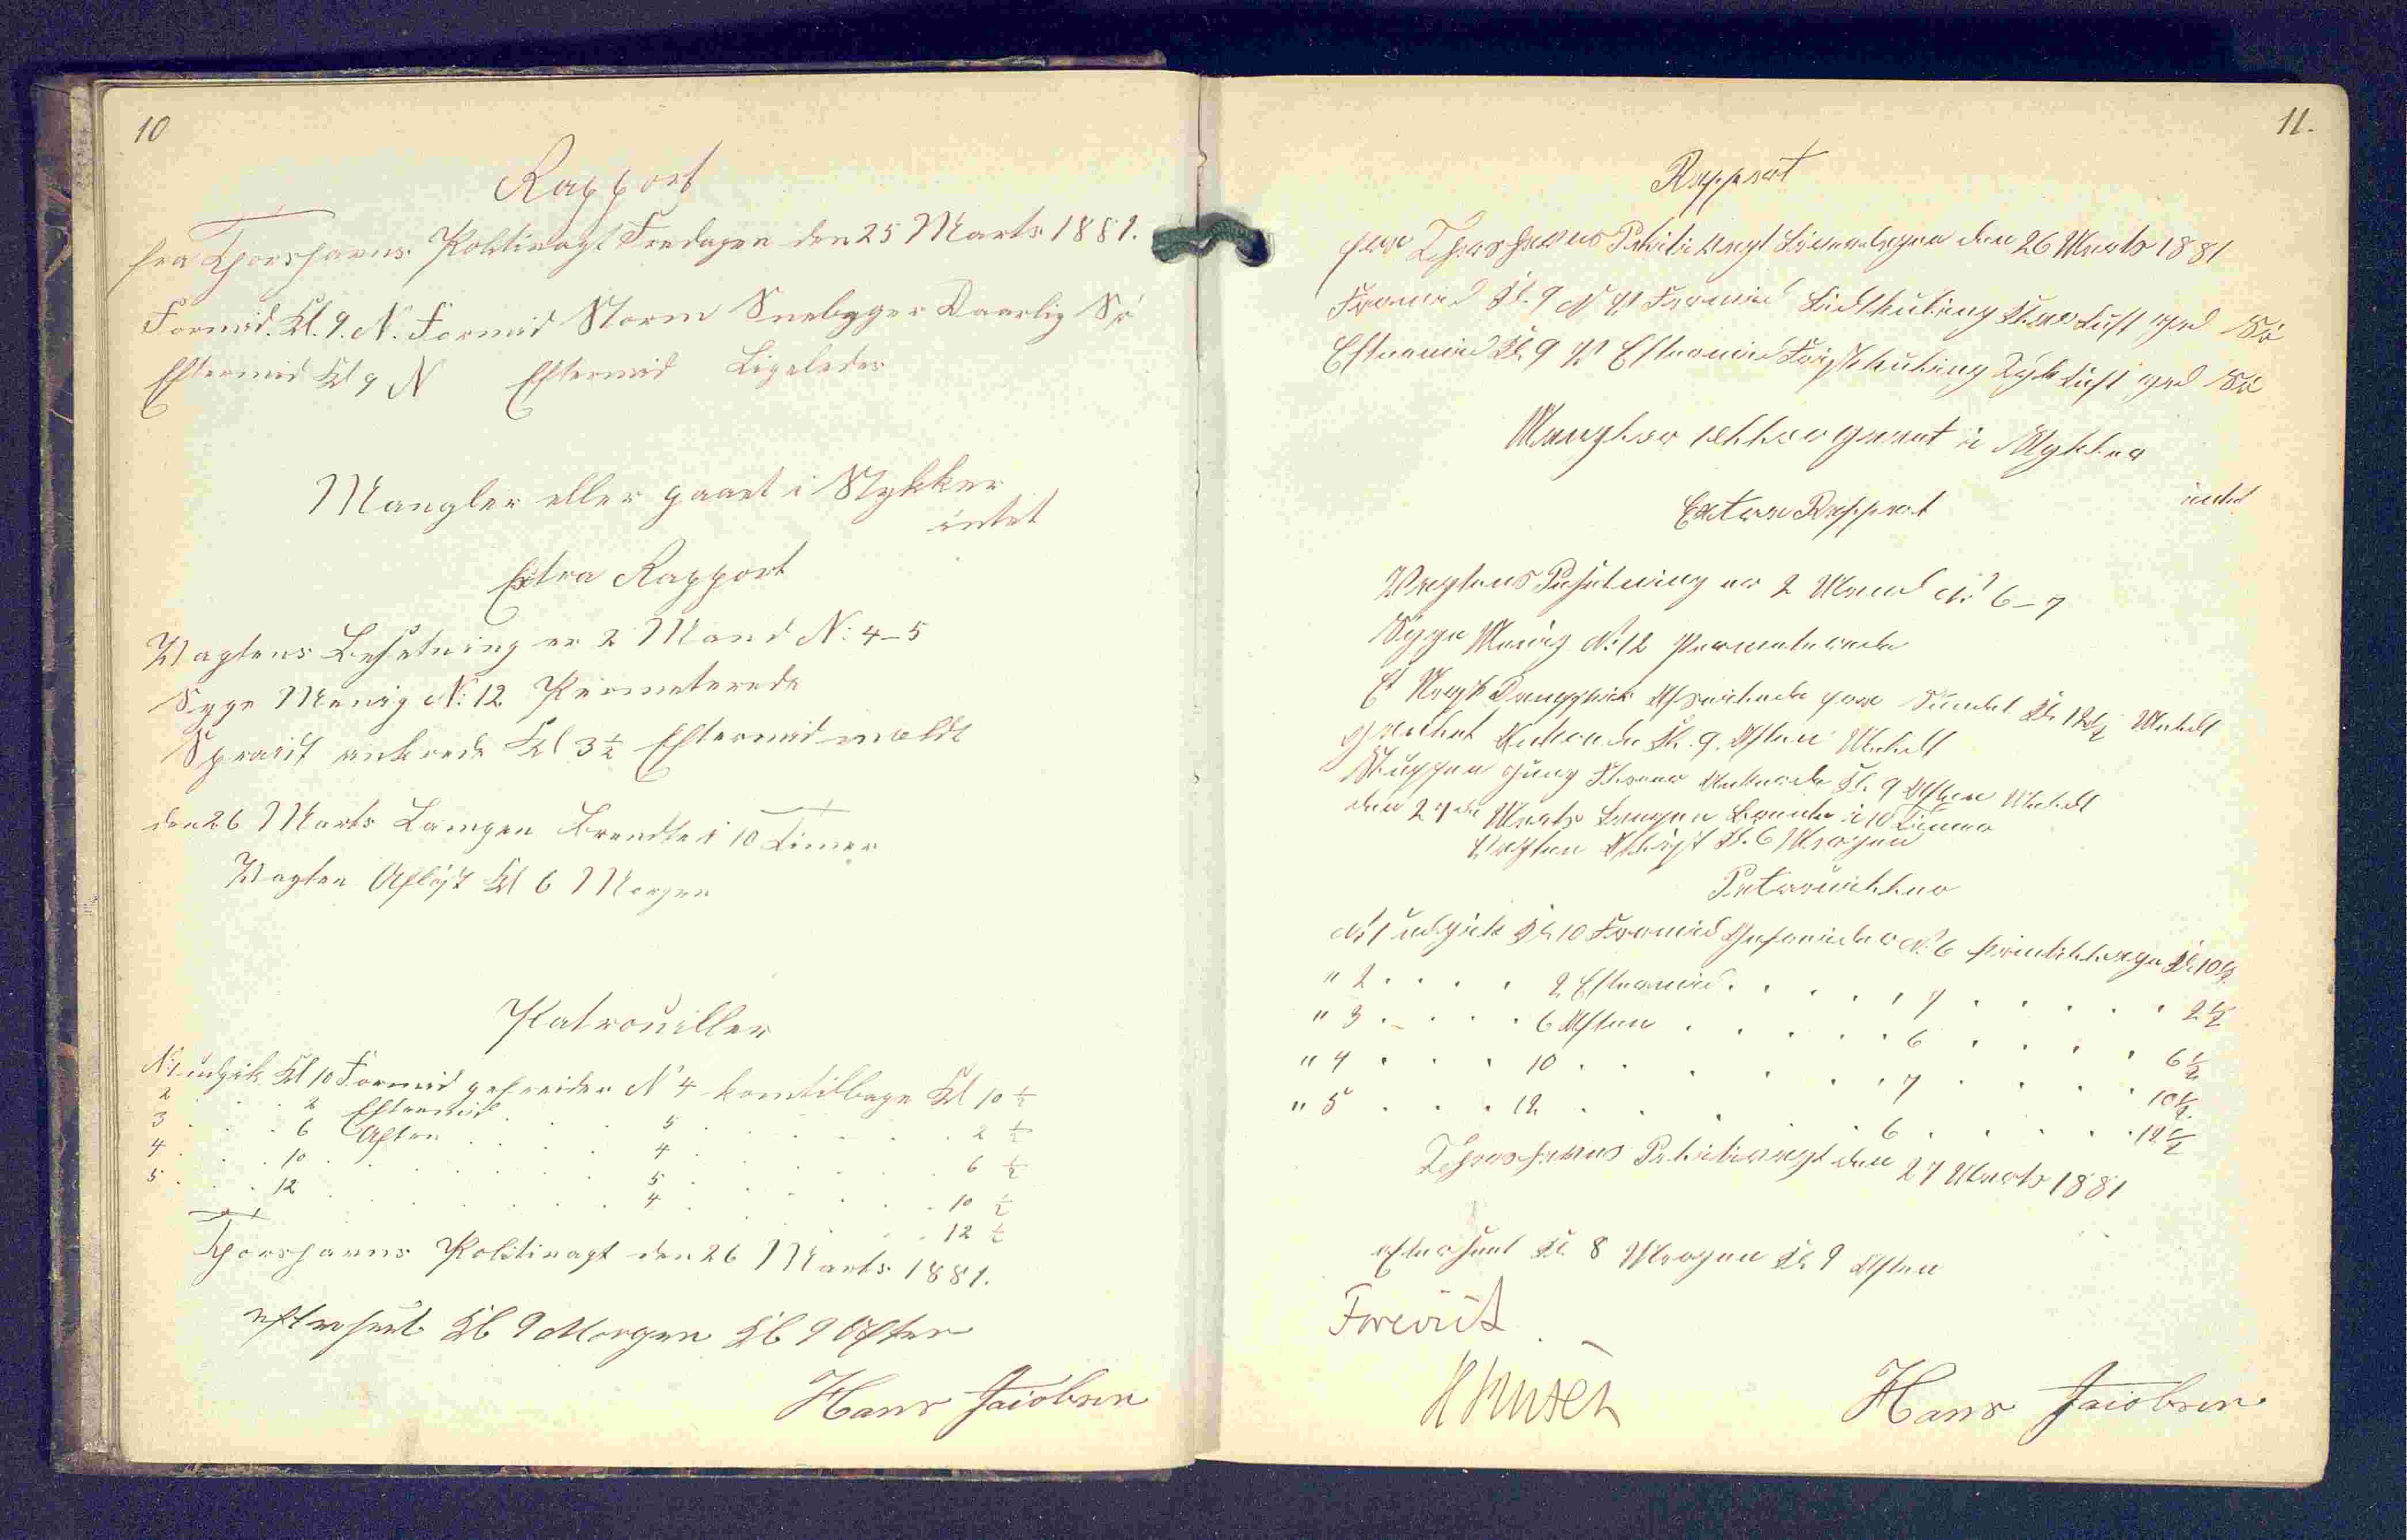 10
Rapport
fra Thorshavns Politivagt Fredagen den 25 Marts 1881.
Formid. Kl. 9. N. Formid Storm Snebyger Daarlig Sö
Eftermid Kl 9 N Eftermid Ligeledes
Mangler eller gaaet i Stykker
intet
Extra Rapport
Vagtens Besetning er 2 Mand N: 4-5
Syge Menig N: 12 Permeterede
ankrede Kl 3½ Eftermid meldt
den 26 Marts Lampen brendte i 10 Timer
Vagten Aflöst Kl 6 Morgen
Patrouiller
N: 1 udgik Kl 10 Formid gefreider N 4 kom tilbage Kl 10 ½
2 . . . 2 Eftermid . . . 5 . . . 2 ½
3 . . . 6 Aften . . . 4 . . . 6 ½
4 . . . 10 . . . 5 . . . 10 ½
5 . . . 12 . . . 4 . . . 12 ½
Thorshavns Politivagt den 26 Marts 1881.
efterseet Kl 9 Morgen Kl 9 Aften
Hans Jacobsen
11.
Rapport
fra Thorshavns Politivagt Löverdagen den 26 Marts 1881
Formid Kl. 9 N V Formid Lidt Kuling Klar Luft god Sö
Eftermid Kl. 9 V Eftermid Frisk Kuling Tyk Luft god Sö
Mangler eller gaaet i Stykker
intet
Extra Rapport
Vagtens Besetning er 2 Mand N: 6-7
Syge Menig N: 12 Permeterede
Et Dampskib fra Sundet Kl 12½ Meldt
Ankrede Kl. 9. Aften Meldt
Ankrede Kl. 9 Aften Meldt
den 27de Marts Lampen brendte i 10 Timer
Vagten Aflöst Kl. 6 Morgen
Patrouiller
N: 1 udgik Kl 10 Formid Gefreider N: 6 kom tilbage Kl. 10½
" 2 . . . . 2 Eftermid . . . . . 7 . . . . . 2½
" 3 . . . . 6 Aften . . . . . 6 . . . . 6½
" 4 . . . 10 . . . . . . 7 . . . . 10½
" 5 . . . 12 . . . . . 6 . . . . . 12½
Thorshavns Politivagt den 27 Marts 1881
efterseet Kl. 8 Morgen Kl. 9 Aften
Forevist
Hans Jacobsen